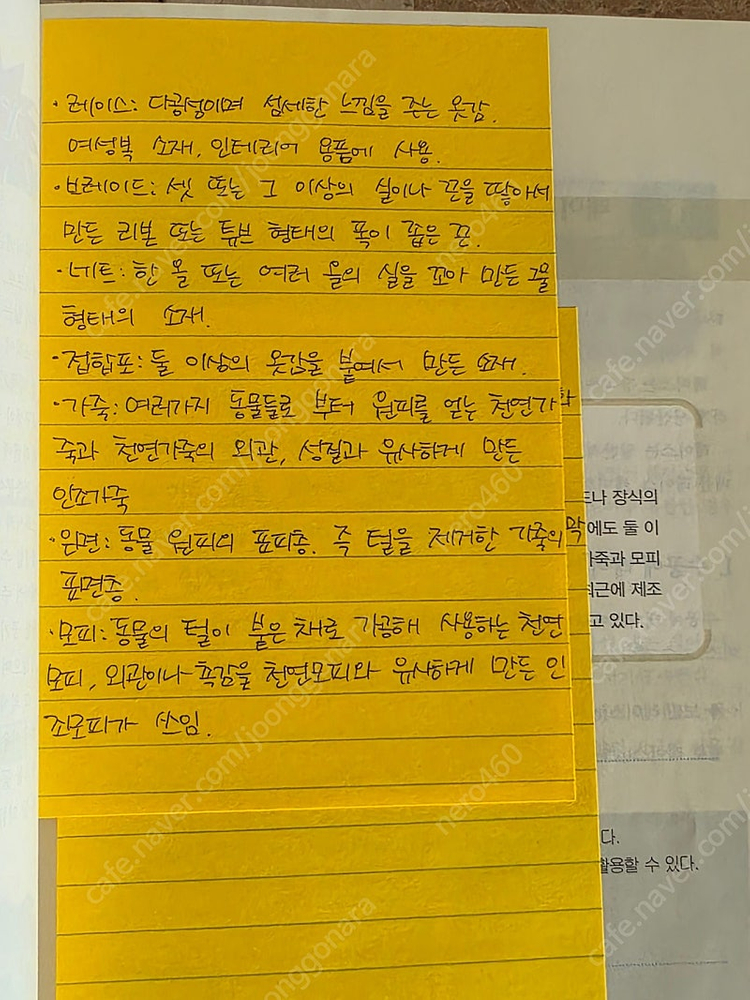 · 레이스: 다공성이며 섬세한 느낌을 주는 옷감.
여성복 소재, 인테리어 용품에 사용.
· 브레이드: 셋 또는 그 이상의 실이나 끈을 땋아서
만든 리본 또는 튜브 형태의 폭이 좁은 끈.
· 네트: 한 올 또는 여러 올의 실을 꼬아 만든 그물
형태의 소재.
· 접합포: 둘 이상의 옷감을 붙여서 만든 소재.
· 가죽: 여러가지 동물들로 부터 원피를 얻는 천연가
죽과 천연가죽의 외관, 성질과 유사하게 만든
인조가죽
· 은면: 동물 원피의 표피층. 즉 털을 제거한 가죽의
표면층.
· 모피: 동물의 털이 붙은 채로 가공해 사용하는 천연
모피, 외관이나 촉감을 천연모피와 유사하게 만든 인
조모피가 쓰임.
화
막
드나 장식의
에도 둘 이
가죽과 모피
최근에 제조
고 있다.
다.
활용할 수 있다.
cafe.naver.com/joonggonara
nero460